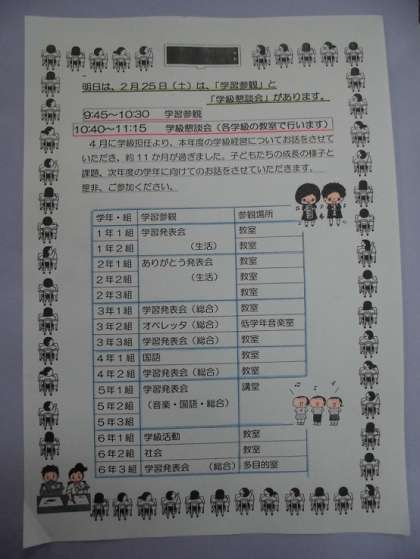 明日は、2月25日(土)は、「学習参観」と
「学級懇談会」があります。
9:45～10:30　学習参観
10:40～11:15　学級懇談会(各学級の教室で行います)
4月に学級担任より、本年度の学級経営についてお話をさせて
いただき、約11か月が過ぎました。子どもたちの成長の様子と
課題、次年度の学年に向けてのお話をさせていただきます。
是非、ご参加ください。
学年・組　学習参観　参観場所
1年1組　学習発表会　教室
1年2組　(生活)　教室
2年1組　ありがとう発表会　教室
2年2組　(生活)　教室
2年3組　教室
3年1組　学習発表会(総合)　教室
3年2組　オペレッタ(総合)　低学年音楽室
3年3組　学習発表会(総合)　教室
4年1組　国語　教室
4年2組　学習発表会(総合)　教室
5年1組　学習発表会　講堂
5年2組　(音楽・国語・総合)
5年3組
6年1組　学級活動　教室
6年2組　社会　教室
6年3組　学習発表会　(総合)　多目的室